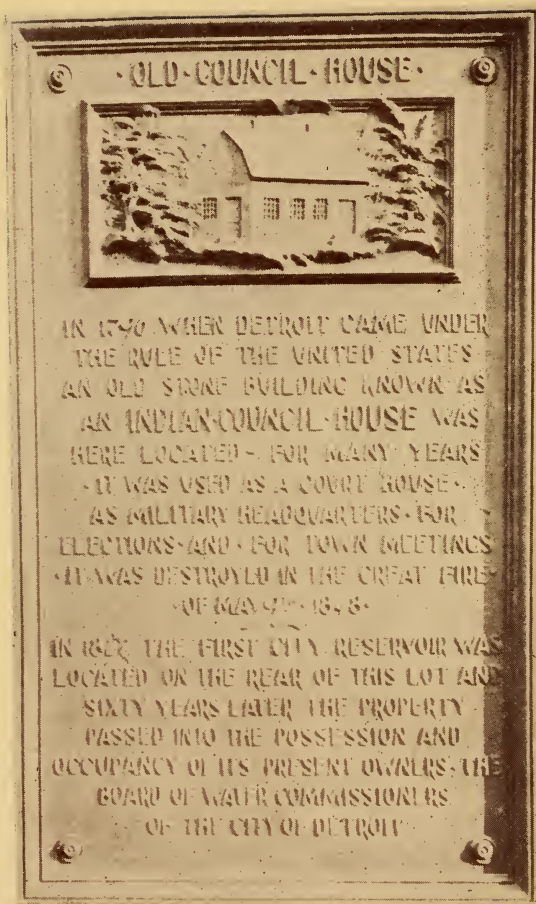 ·OLD·COUNCIL·HOUSE·
IN 1796 WHEN DETROIT CAME UNDER
THE RULE OF THE UNITED STATES
AN OLD STONE BUILDING KNOWN AS
AN INDIAN·COUNCIL·HOUSE WAS
HERE LOCATED - FOR MANY YEARS
·IT WAS USED AS A COVRT HOUSE·
AS MILITARY HEADQUARTERS·FOR
ELECTIONS·AND·FOR TOWN MEETINGS
·IT WAS DESTROYED IN THE GREAT FIRE·
·OF MAY
IN THE FIRST CITY RESERVOIR WAS
LOCATED ON THE REAR OF THIS LOT AND
SIXTY YEARS LATER THE PROPERTY
PASSED INTO THE POSSESSION AND
OCCUPANCY OF ITS PRESENT OWNERS, THE
BOARD OF WATER COMMISSIONERS
OF THE CITY OF DETROIT